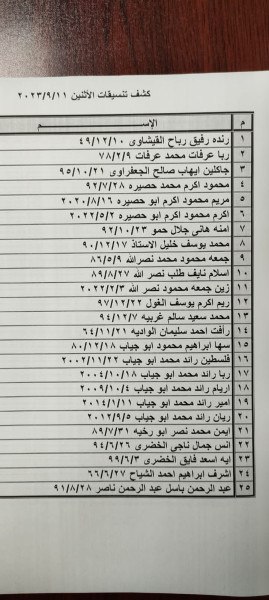 كشف تنسيقات الأثنين ٢٠٢٣/٩/١١
م الإســـم
١ رنده رفيق رباح القيشاوى ٤٩/١٢/١٠
٢ ربا عرفات محمد عرفات ٧٨/٢/٩
٣ جاكلين ايهاب صالح الجعفراوى ٩٥/١٠/٢١
٤ محمود اكرم محمد حصيره ٩٢/٧/٢٨
٥ مريم محمود اكرم ابو حصيره ٢٠٢٠/٨/١٦
٦ اكرم محمود اكرم ابو حصيره ٢٠٢٢/٥/٢
٧ امنه هانى جلال حمو ٩٢/١٠/٢٣
٨ محمد يوسف خليل الاستاذ ٩٠/١٢/١٧
٩ جمعه محمود محمد نصرالله ٨٦/٥/٩
١٠ اسلام نايف طلب نصر الله ٨٩/٨/٢٧
١١ زين جمعه محمود نصر الله ٢٠٢٢/٢/٣
١٢ ريم اكرم يوسف الغول ٩٧/١٢/٢٢
١٣ محمد سعيد سالم غربيه ٩٤/١٢/٧
١٤ رأفت احمد سليمان الواديه ٦٤/١١/٢١
١٥ سها ابراهيم محمود ابو جياب ٨٠/١٢/١٨
١٦ فلسطين رائد محمد ابو جياب ٢٠٠٢/١١/٢٢
١٧ ربا رائد محمد ابو جياب ٢٠٠٤/١٠/١٨
١٨ اريام رائد محمد ابو جياب ٢٠٠٩/١٠/٤
١٩ امير رائد محمد ابو جياب ٢٠١٤/١/١١
٢٠ ريان رائد محمد ابو جياب ٢٠١٢/٩/٥
٢١ ايمن محمد نصر ابو رخيه ٨٩/٧/٣١
٢٢ انس جمال ناجى الخضرى ٩٤/٦/٢٦
٢٣ ايه اسعد فايق الخضرى ٩٩/٦/٣
٢٤ اشرف ابراهيم احمد الشياح ٦٦/٦/٢٧
٢٥ عبد الرحمن باسل عبد الرحمن ناصر ٩١/٨/٢٨